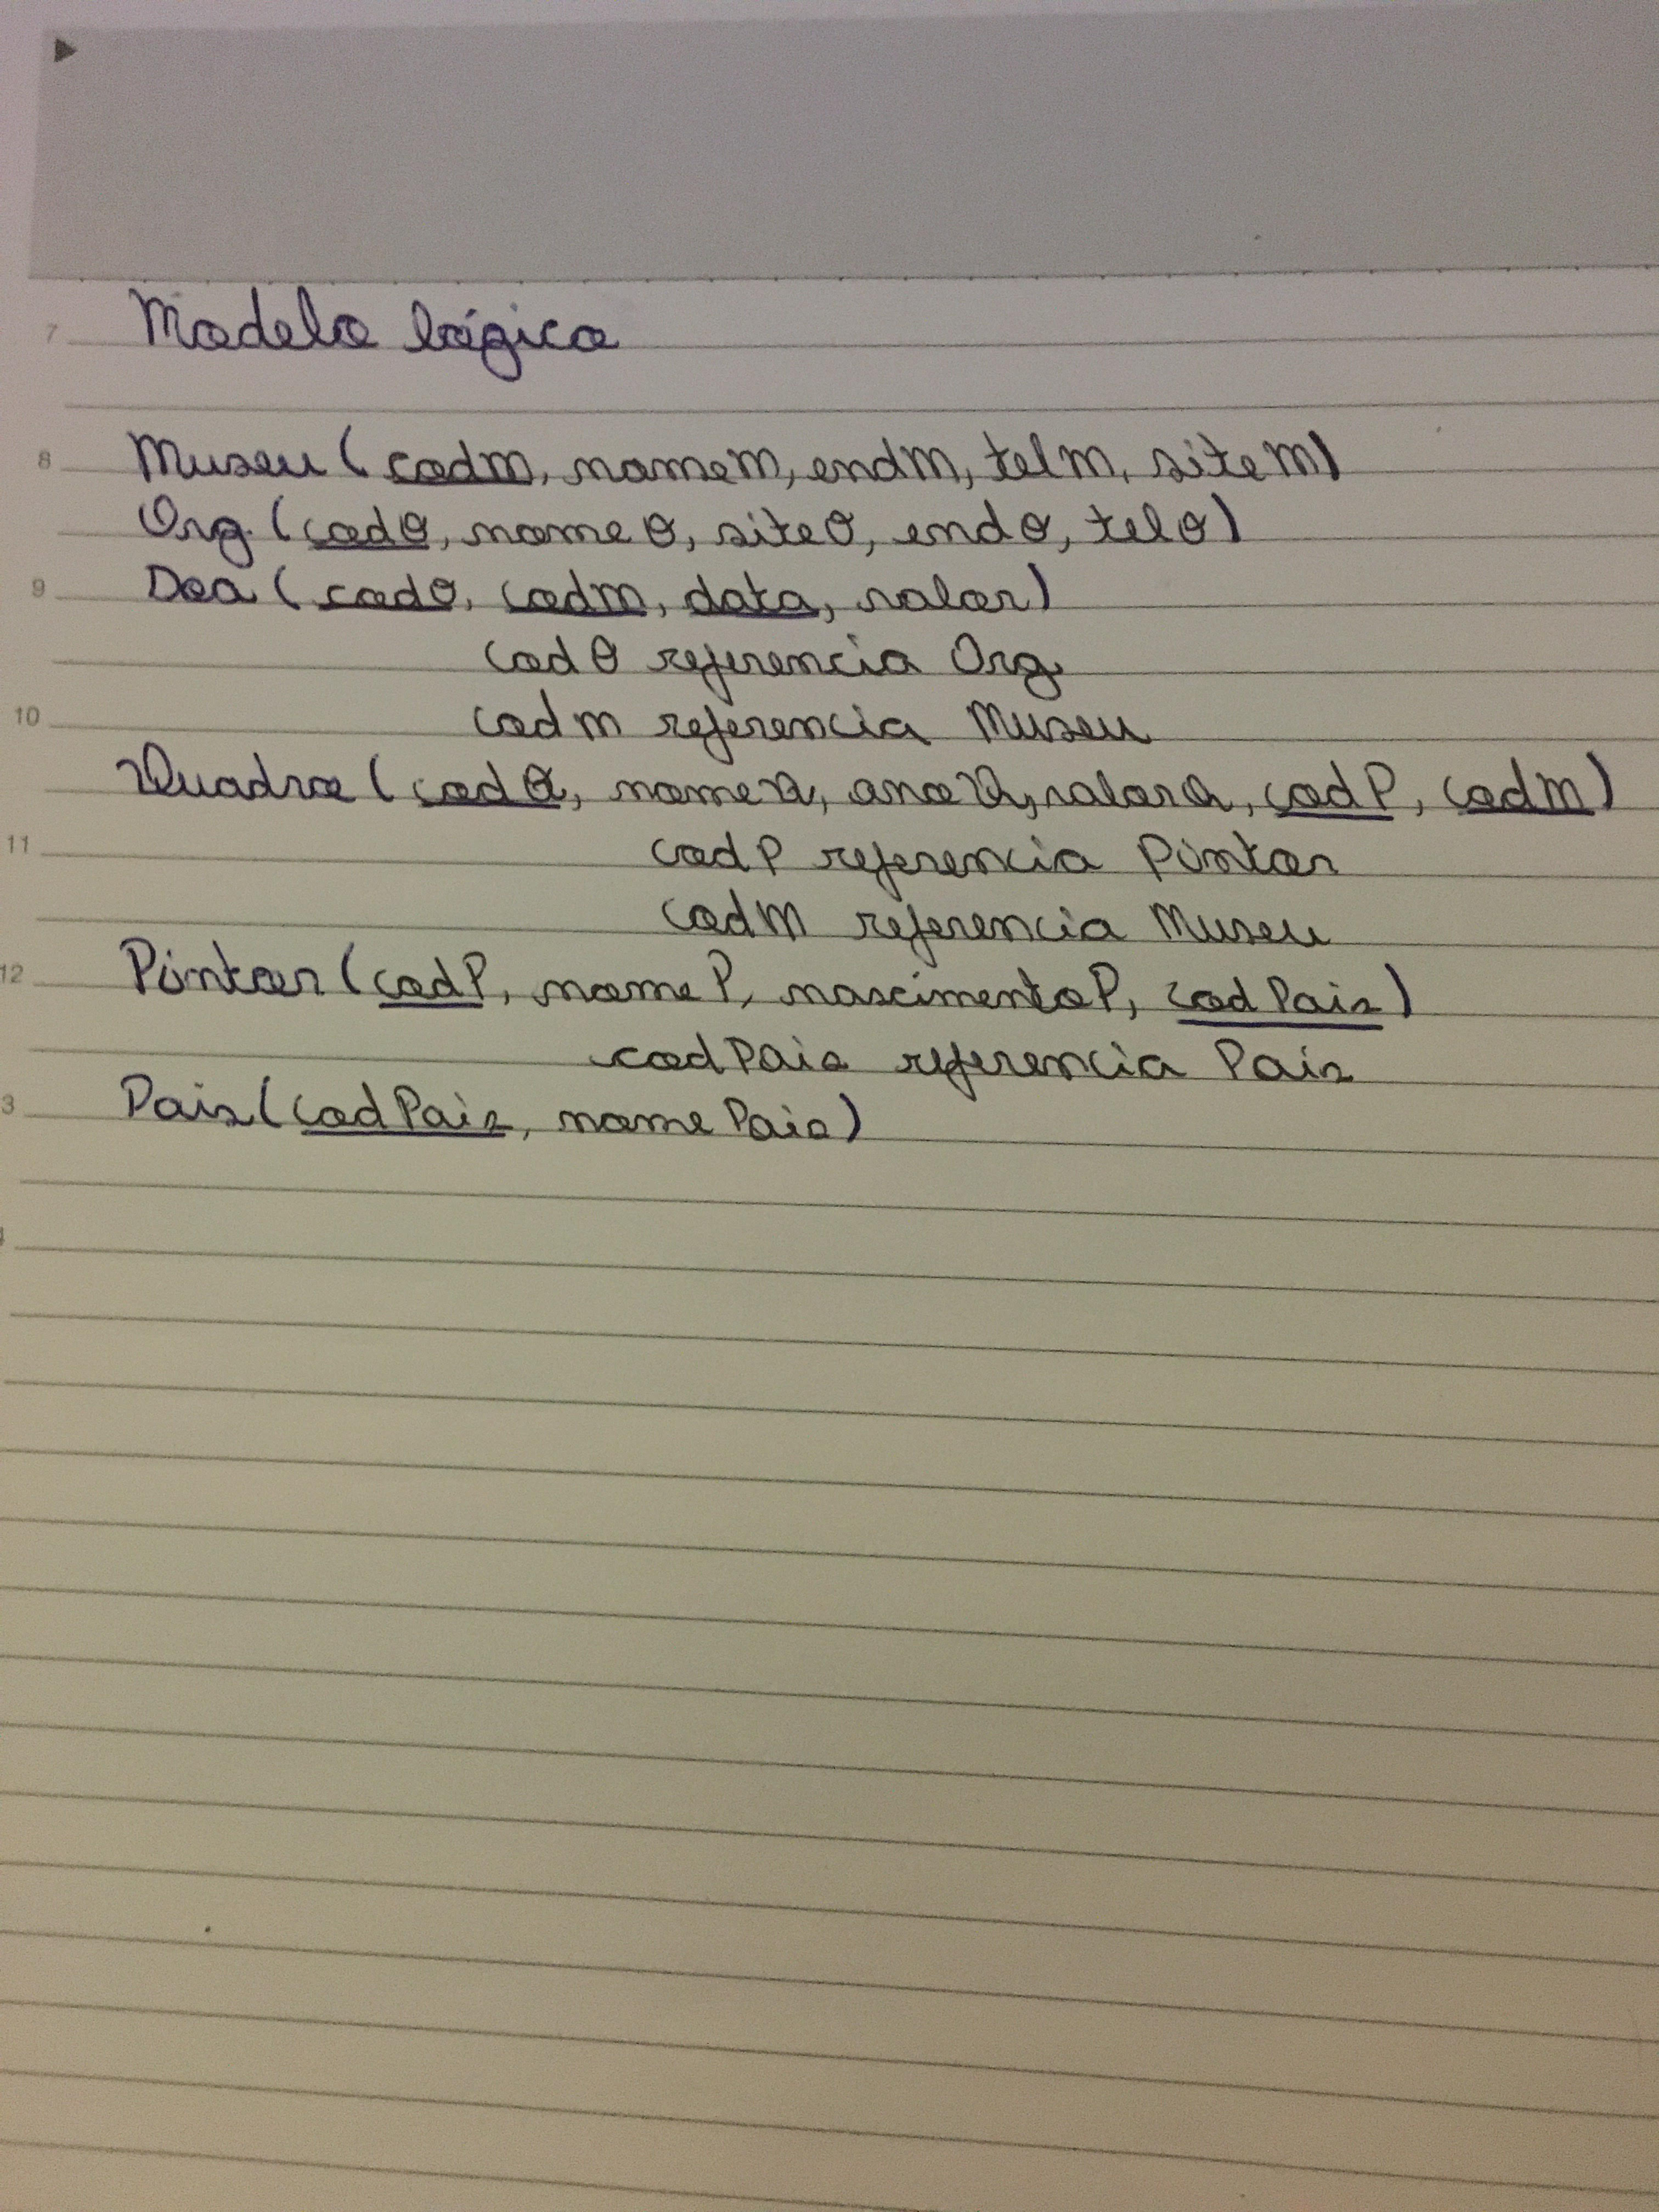 Modelo lógico
7
8 Museu (codM, nomeM, endM, telM, siteM)
Org. (codO, nomeO, siteO, endO, telO)
9 Doa (codO, codM, data, valor)
codO referencia Org
10 codM referencia Museu
Quadro (codQ, nomeQ, anoQ, valorQ, codP, codM)
11 codP referencia Pintor
codM referencia Museu
12 Pintor (codP, nomeP, nascimentoP, codPais)
codPais referencia Pais
3 Pais (codPais, nomePais)